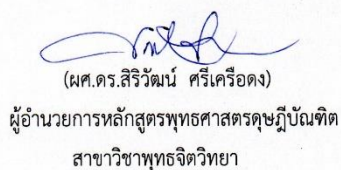 (ผศ.ดร.สิริวัฒน์ ศรีเครือดง)
ผู้อำนวยการหลักสูตรพุทธศาสตรดุษฎีบัณฑิต
สาขาวิชาพุทธจิตวิทยา